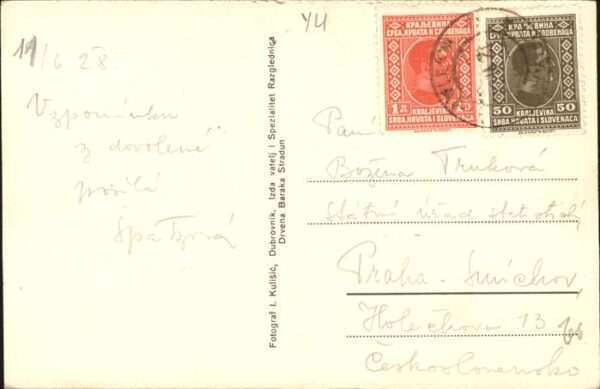 11/6 28.
Vzpomínku
z dovolené
posílá
Fotograf I. Kulišić, Dubrovnik, Izda vatelj i Spezialitet Razglednica
Drvena Baraka Stradun
КРАЉЕВИНА
СРБА, ХРВАТА И СЛОВЕНАЦА
KRALJEVINA
SRBA, HRVATA I SLOVENACA
КРАЉЕВИНА
СРБА, ХРВАТА И СЛОВЕНАЦА
50 50
KRALJEVINA
SRBA, HRVATA I SLOVENACA
Paní
Božena Truková
Státní úřad
Praha-Smíchov
Holečkova 13
Československo